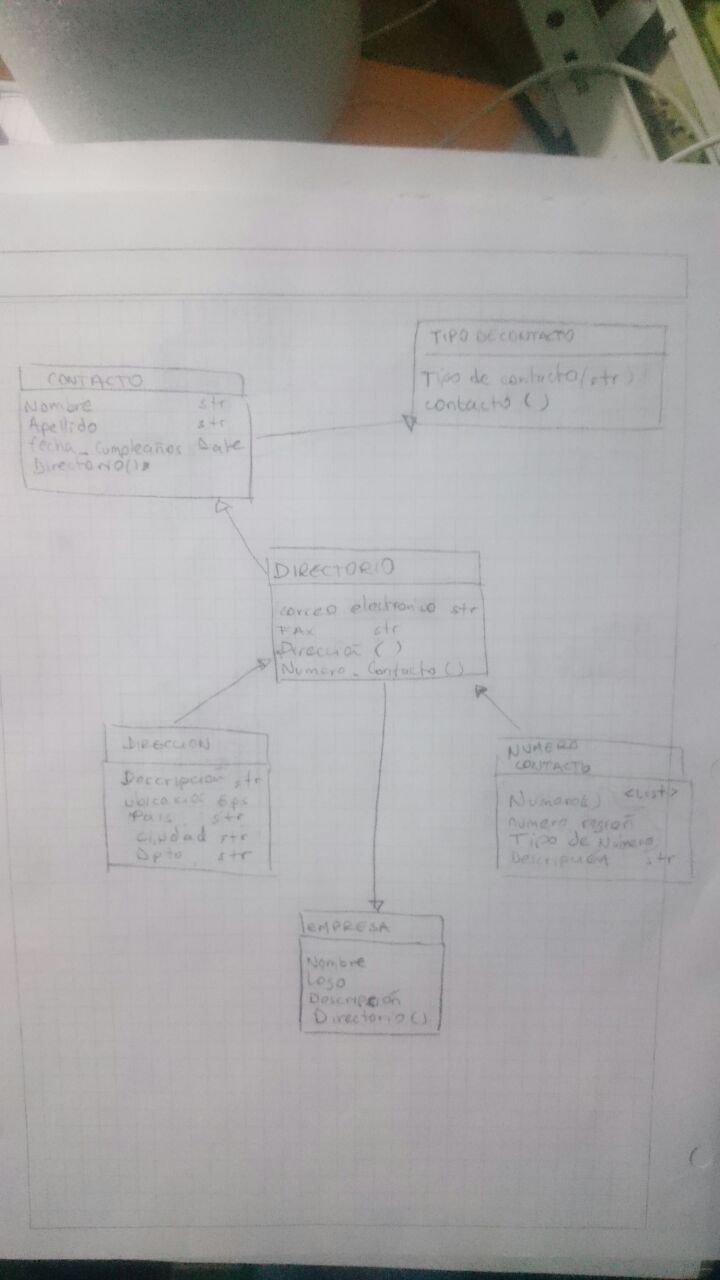 TIPO DE CONTACTO
Tipo de contacto(str)
contacto ( )
CONTACTO
Nombre str
Apellido str
fecha_cumpleaños Date
Directorio()
DIRECTORIO
correo electronico str
FAX str
Dirección ( )
Numero_Contacto ( )
DIRECCION
Descripcion str
ubicación Gps
Pais str
ciudad str
Dpto str
NUMERO
CONTACTO
Numero( ) <List>
numero region
Tipo de Numero
Descripción str
EMPRESA
Nombre
Logo
Descripción
Directorio ( )